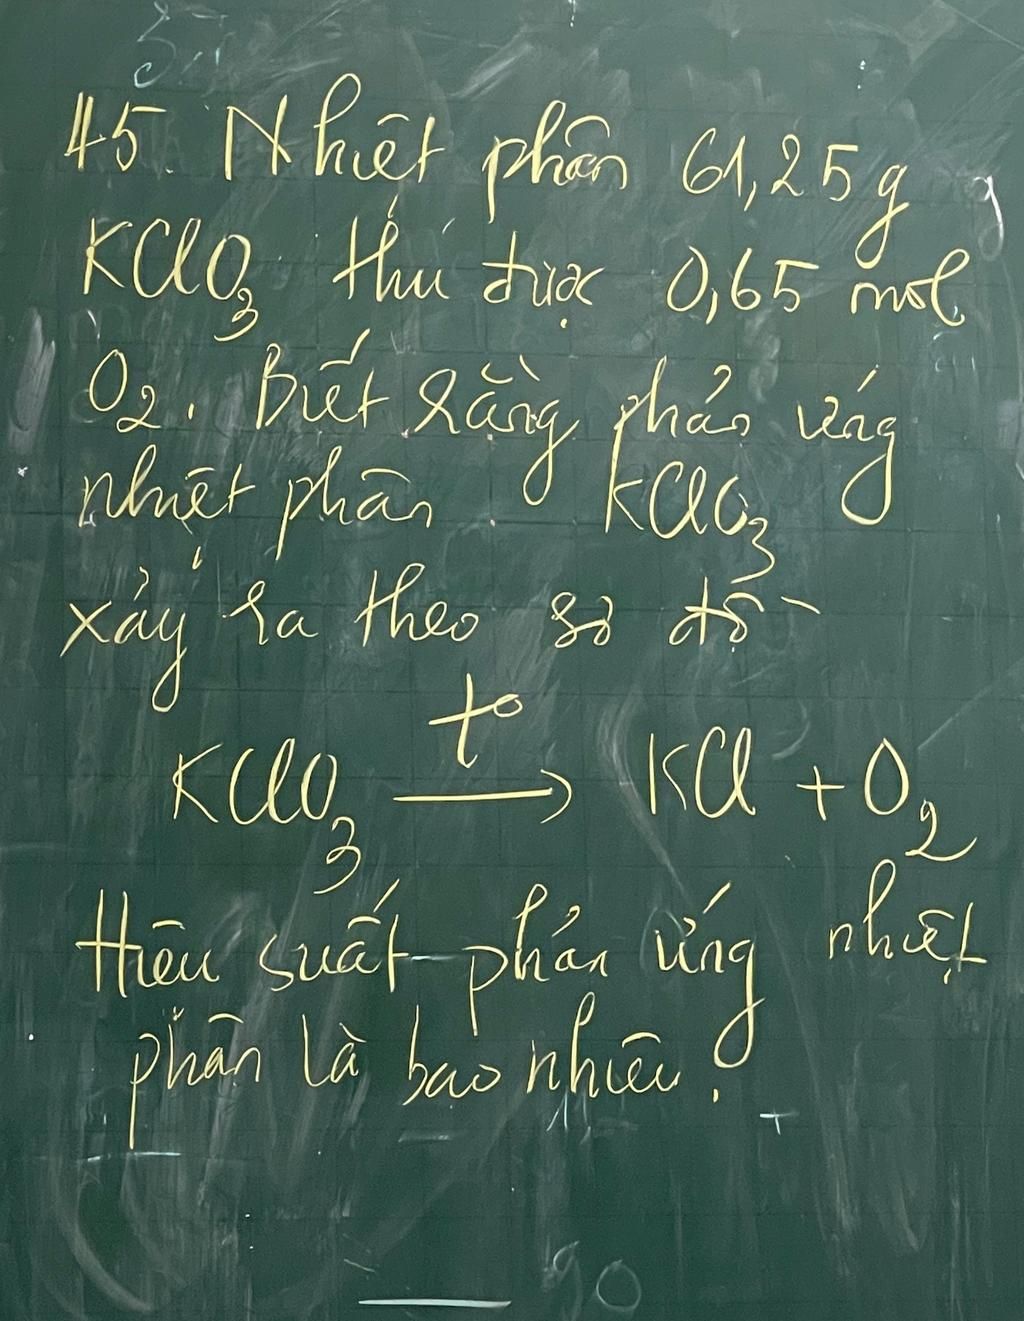 45. Nhiệt phân 61,25g
KClO₃ thu được 0,65 mol
O₂. Biết rằng phản ứng
nhiệt phân KClO₃
xảy ra theo sơ đồ
t°
KClO₃ → KCl + O₂
Hiệu suất phản ứng nhiệt
phân là bao nhiêu?